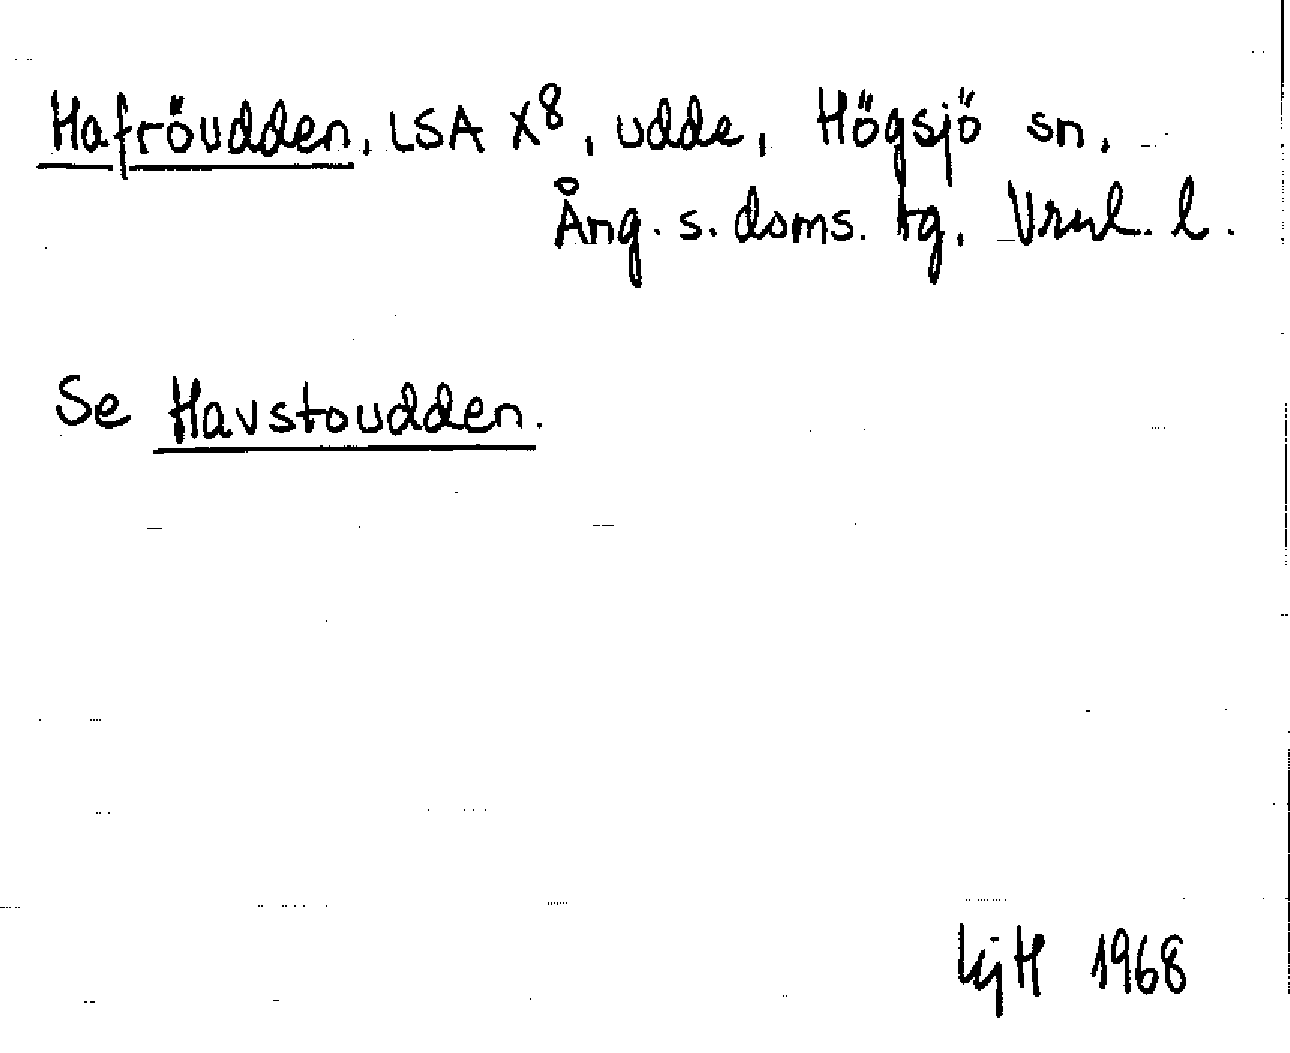 Hafröudden, LSA X⁸, udde, Högsjö sn,
Ång. s. doms. tg, Vrnl. l.
Se Havstoudden.
LijH 1968